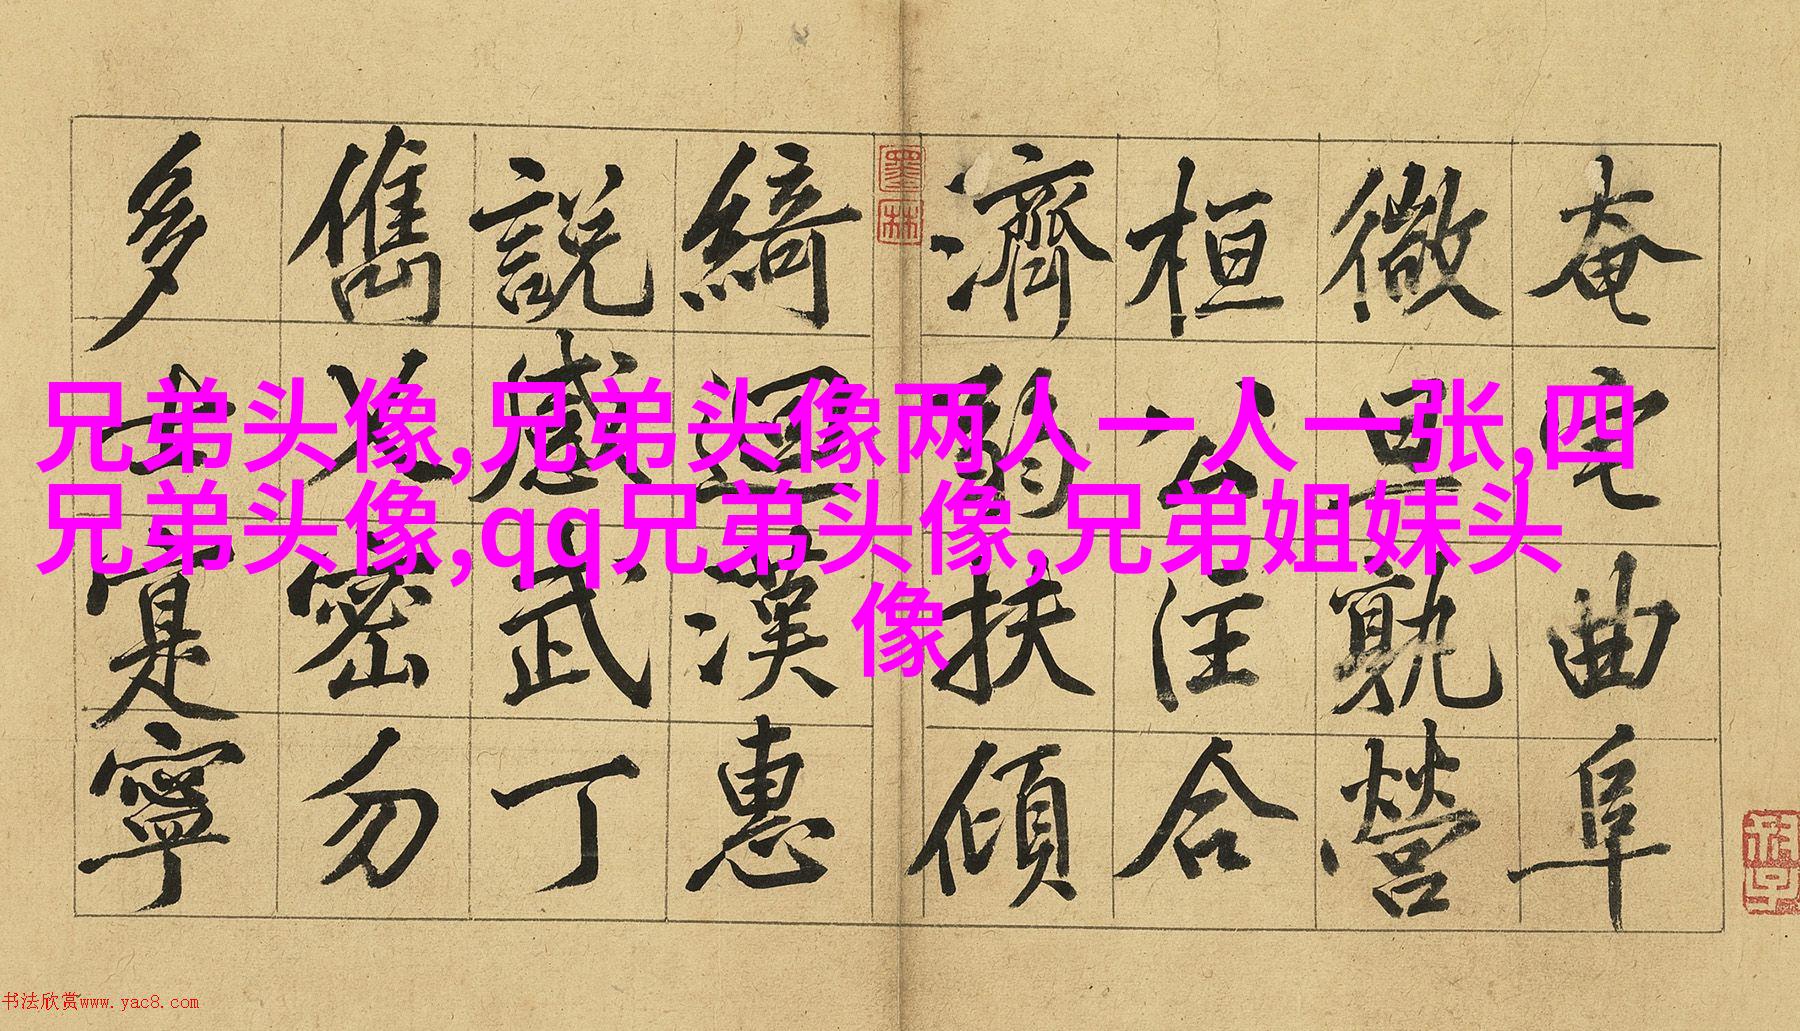 奄宅曲阜
微旦孰營
桓公匡合
濟弱扶傾
綺迴漢惠
說感武丁
儁乂密勿
多士寔寧
墨林
兄弟头像,兄弟头像两人一人一张,四
兄弟头像,qq兄弟头像,兄弟姐妹头
像
书法欣赏www.yac8.com